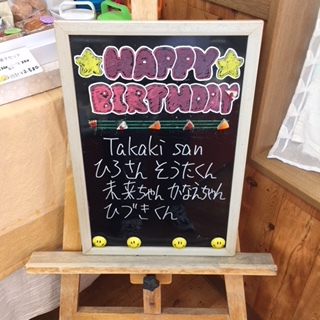 HAPPY
BIRTHDAY
Takaki san
ひろさん そうたくん
未来ちゃん かなえちゃん
ひづきくん